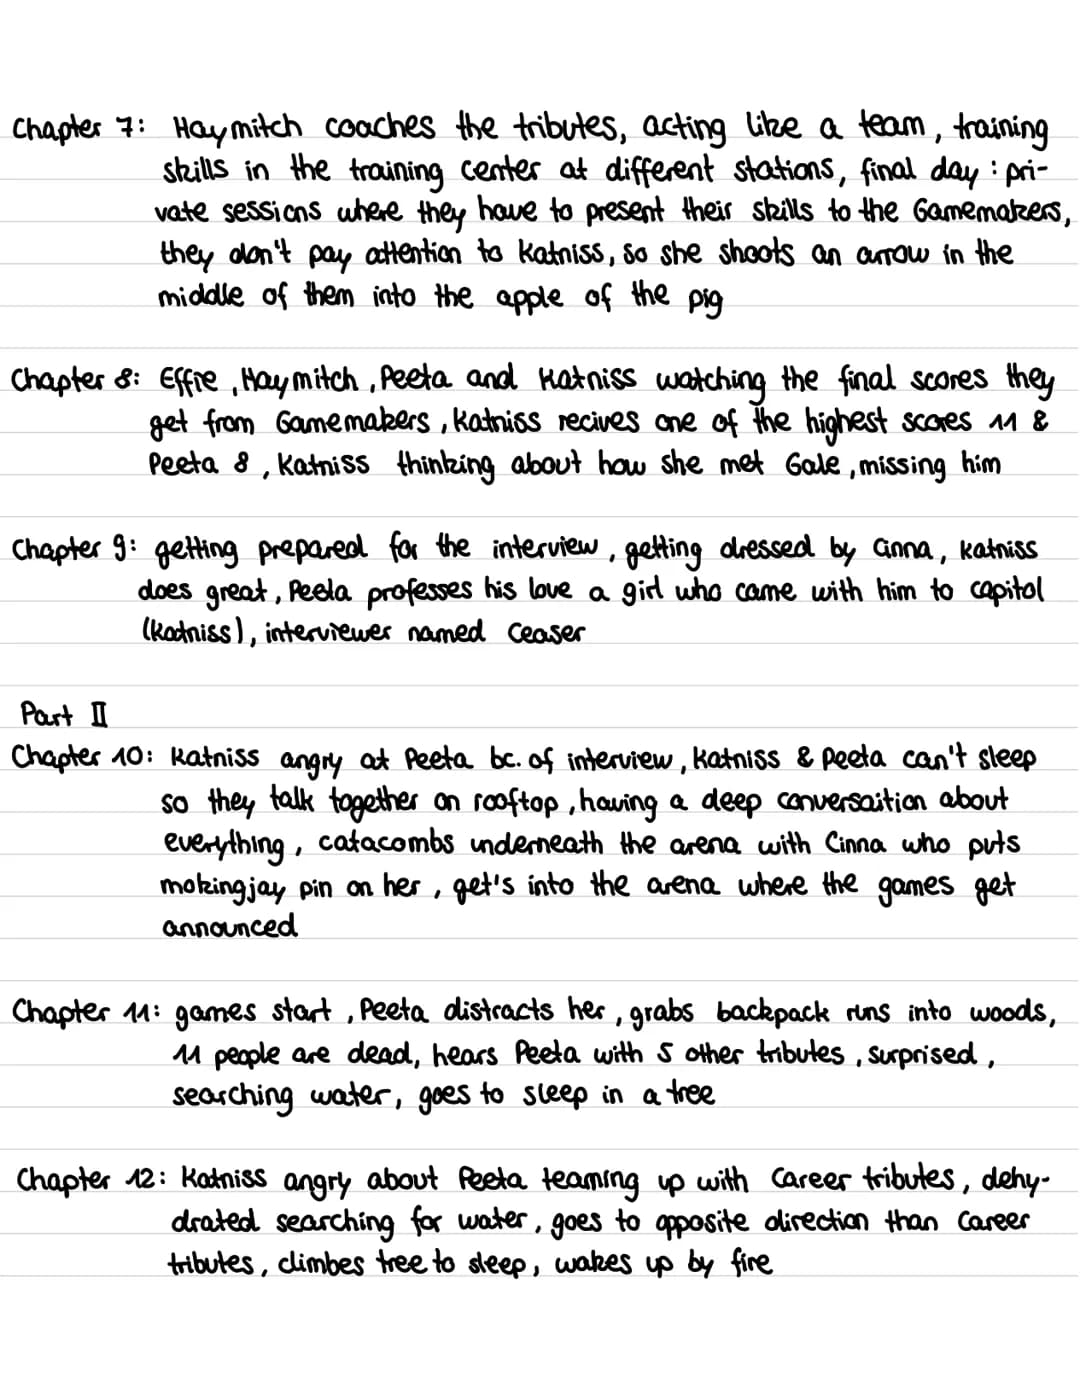 Chapter 7: Haymitch coaches the tributes, acting like a team, training
skills in the training center at different stations, final day : pri-
vate sessions where they have to present their skills to the Gamemakers,
they don't pay attention to Katniss, so she shoots an arrow in the
middle of them into the apple of the pig
Chapter 8: Effie, Haymitch, Peeta and Katniss watching the final scores they
get from Gamemakers, Katniss recives one of the highest scores 11 &
Peeta 8, Katniss thinking about how she met Gale, missing him
Chapter 9: getting prepared for the interview, getting dressed by Cinna, Katniss
does great, Peeta professes his love a girl who came with him to capitol
(Katniss), interviewer named Ceaser
Part II
Chapter 10: Katniss angry at Peeta bc. of interview, Katniss & Peeta can't sleep
so they talk together on rooftop, having a deep conversaition about
everything, catacombs underneath the arena with Cinna who puts
mokingjay pin on her, get's into the arena where the games get
announced
Chapter 11: games start, Peeta distracts her, grabs backpack runs into woods,
11 people are dead, hears Peeta with 5 other tributes, surprised,
searching water, goes to sleep in a tree
Chapter 12: Katniss angry about Peeta teaming up with Career tributes, dehy-
drated searching for water, goes to opposite direction than Career
tributes, climbes tree to sleep, wakes up by fire